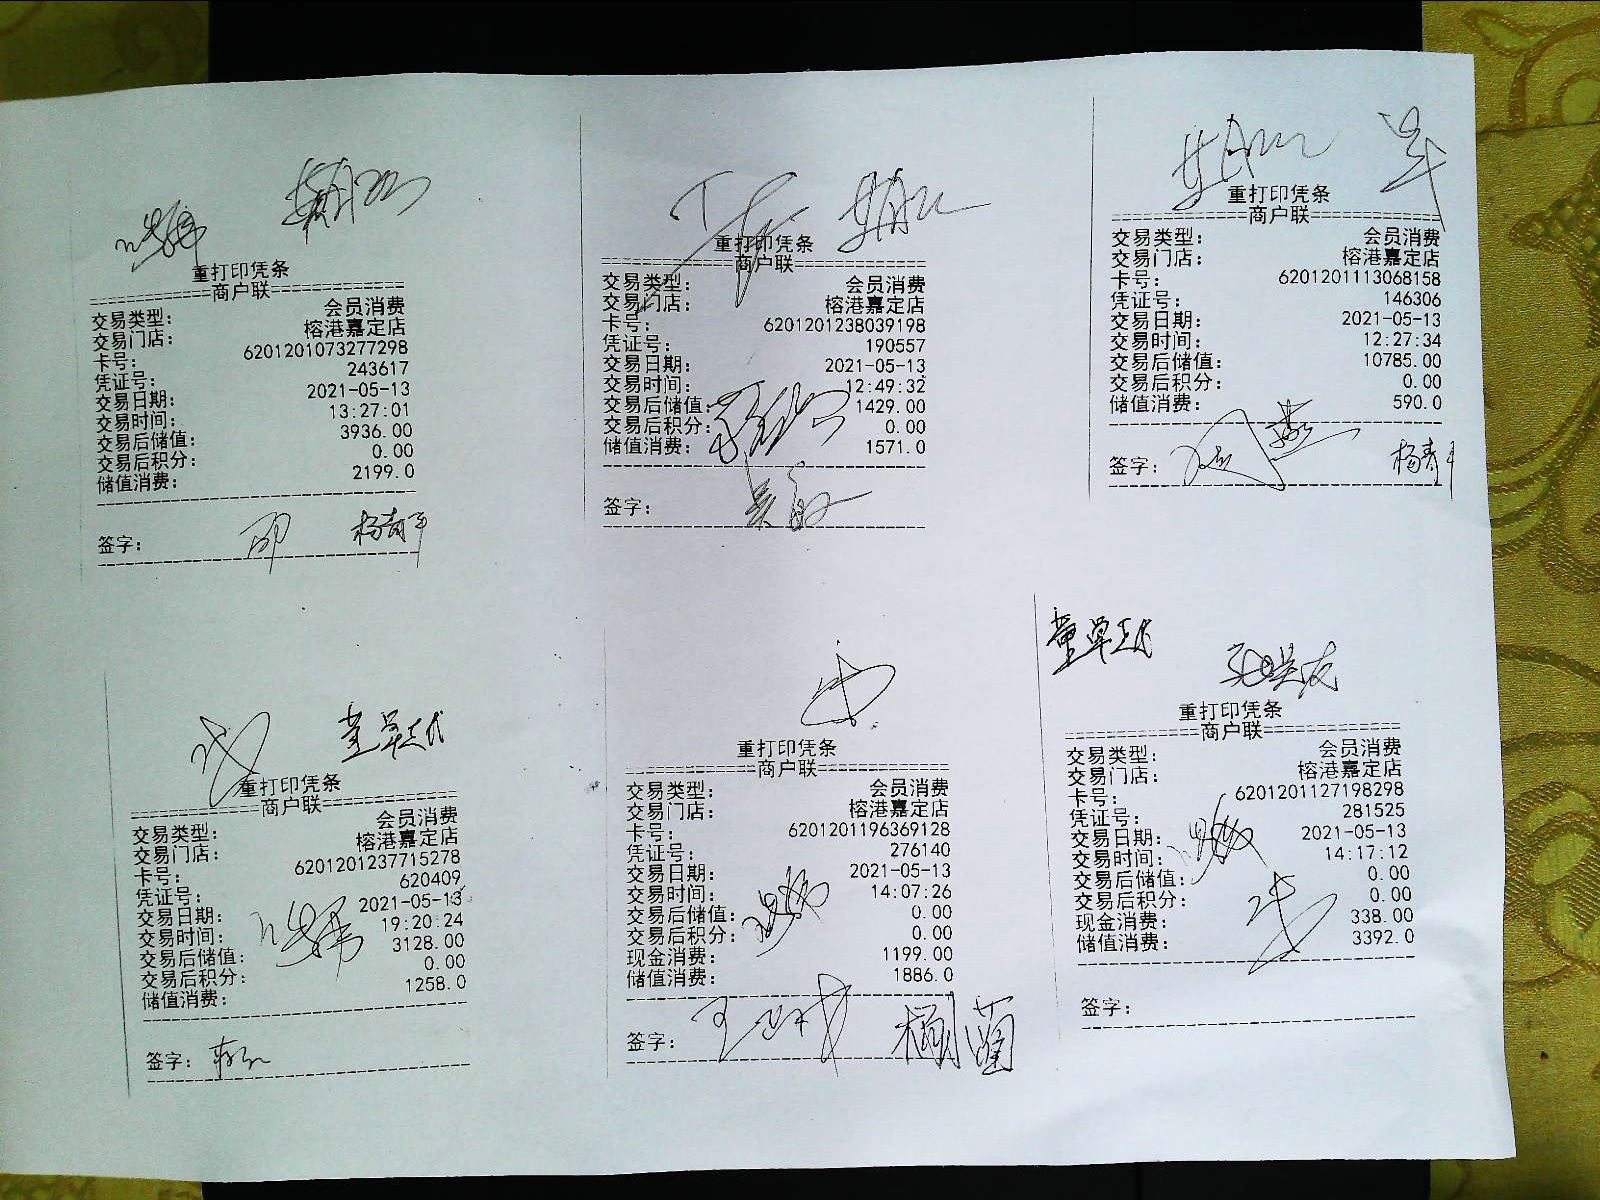 重打印凭条
============商户联============
交易类型： 会员消费
交易门店： 榕港嘉定店
卡号： 6201201073277298
凭证号： 243617
交易日期： 2021-05-13
交易时间： 13:27:01
交易后储值： 3936.00
交易后积分： 0.00
储值消费： 2199.0
签字： 邵 杨青平
重打印凭条
============商户联============
交易类型： 会员消费
交易门店： 榕港嘉定店
卡号： 6201201238039198
凭证号： 190557
交易日期： 2021-05-13
交易时间： 12:49:32
交易后储值： 1429.00
交易后积分： 0.00
储值消费： 1571.0
签字：
重打印凭条
============商户联============
交易类型： 会员消费
交易门店： 榕港嘉定店
卡号： 6201201113068158
凭证号： 146306
交易日期： 2021-05-13
交易时间： 12:27:34
交易后储值： 10785.00
交易后积分： 0.00
储值消费： 590.0
签字： 杨青平
重打印凭条
============商户联============
交易类型： 会员消费
交易门店： 榕港嘉定店
卡号： 6201201237715278
凭证号： 620409
交易日期： 2021-05-13
交易时间： 19:20:24
交易后储值： 3128.00
交易后积分： 0.00
储值消费： 1258.0
签字：
重打印凭条
============商户联============
交易类型： 会员消费
交易门店： 榕港嘉定店
卡号： 6201201196369128
凭证号： 276140
交易日期： 2021-05-13
交易时间： 14:07:26
交易后储值： 0.00
交易后积分： 0.00
现金消费： 1199.00
储值消费： 1886.0
签字：
重打印凭条
============商户联============
交易类型： 会员消费
交易门店： 榕港嘉定店
卡号： 6201201127198298
凭证号： 281525
交易日期： 2021-05-13
交易时间： 14:17:12
交易后储值： 0.00
交易后积分： 0.00
现金消费： 338.00
储值消费： 3392.0
签字：